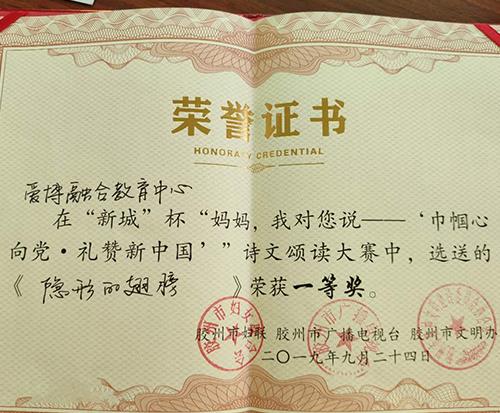 荣誉证书
HONORARY CREDENTIAL
爱博融合教育中心
在“新城”杯“妈妈，我对您说——‘巾帼心
向党·礼赞新中国’”诗文颂读大赛中，选送的
《隐形的翅膀》荣获一等奖。
胶州市妇联 胶州市广播电视台 胶州市文明办
二〇一九年九月二十四日